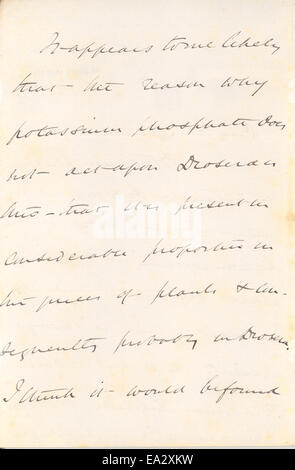 It appears to me likely
that the reason why
potassium phosphate does
not act upon Drosera is
this - that it is present in
considerable proportion in
the juices of plants & con-
sequently probably in Drosera.
I think it would be found
alamy
alamy stock photo
EA2XKW